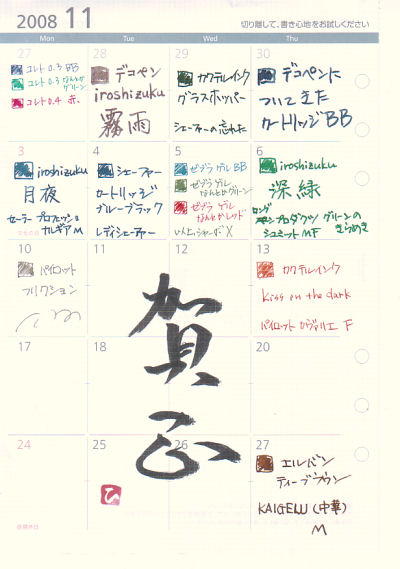 2008 11
切り離して、書き心地をお試しください
Mon Tue Wed Thu
27 28 29 30
コレト0.3 BB
コレト0.3 なんとか
グリーン
コレト0.4 赤
デコペン
iroshizuku
霧雨
カクテルインク
グラスホッパー
シェーファーの忘れた
デコペンに
ついてきた
カートリッジBB
3 4 5 6
iroshizuku
月夜
セーラー プロフェッショ
ナルギア M
文化の日
シェーファー
カートリッジ
ブルーブラック
レディシェーファー
ゼブラ ゲル BB
ゼブラ ゲル
なんとかグリーン
ゼブラ ゲル
なんとかレッド
iroshizuku
深緑
ロング
プロダクツ グリーンの
きらめき
シュミット MF
10 11 12 13
パイロット
フリクション
カクテルインク
Kiss on the dark
パイロット カヴァリエ F
賀正
17 18 20
24 25 26 27
振替休日
ひ
エルバン
ティーブラウン
KAIGELU (中華)
M